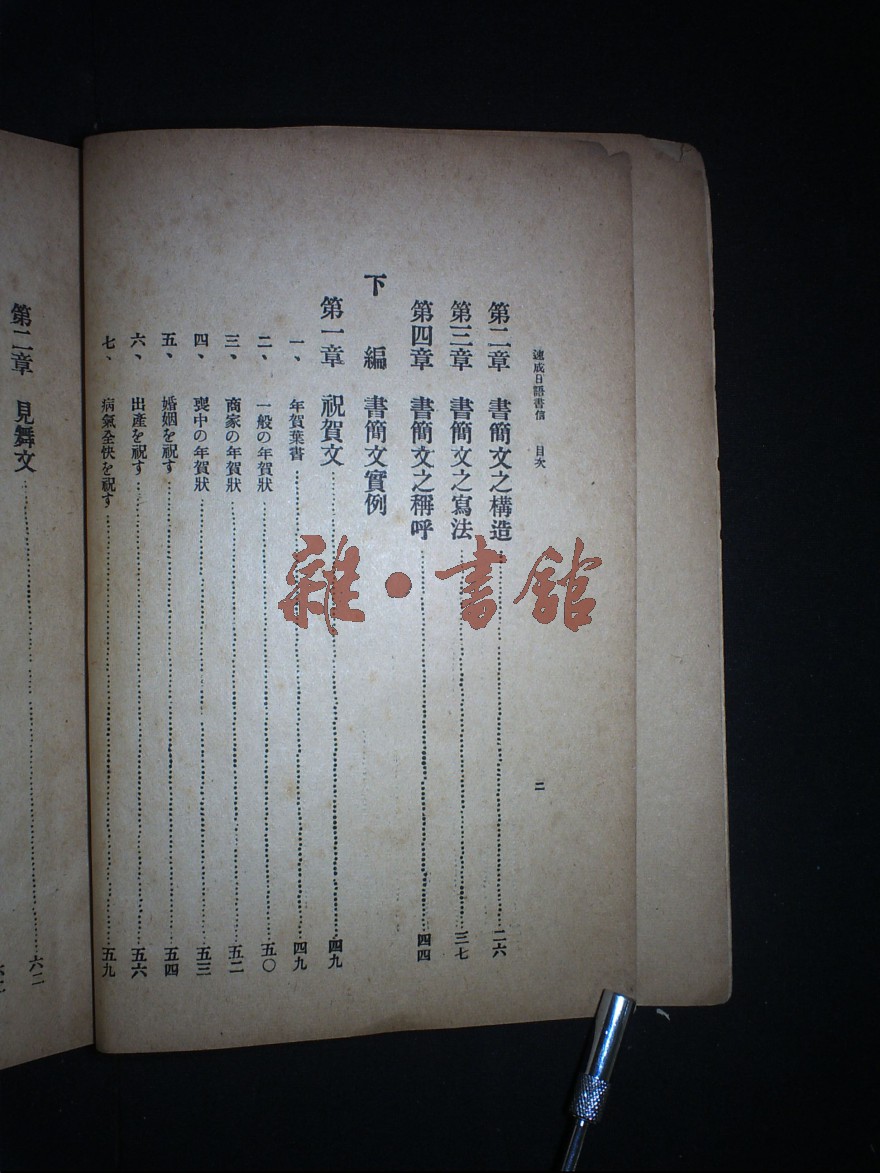 速成日語書信 目次 二
第二章 書簡文之構造……二六
第三章 書簡文之寫法……三七
第四章 書簡文之稱呼……四四
下編 書簡文實例
第一章 祝賀文……四九
一、年賀葉書……四九
二、一般の年賀狀……五〇
三、商家の年賀狀……五二
四、喪中の年賀狀……五三
五、婚姻を祝す……五四
六、出產を祝す……五六
七、病氣全快を祝す……五九
第二章 見舞文……六二
雜·書館